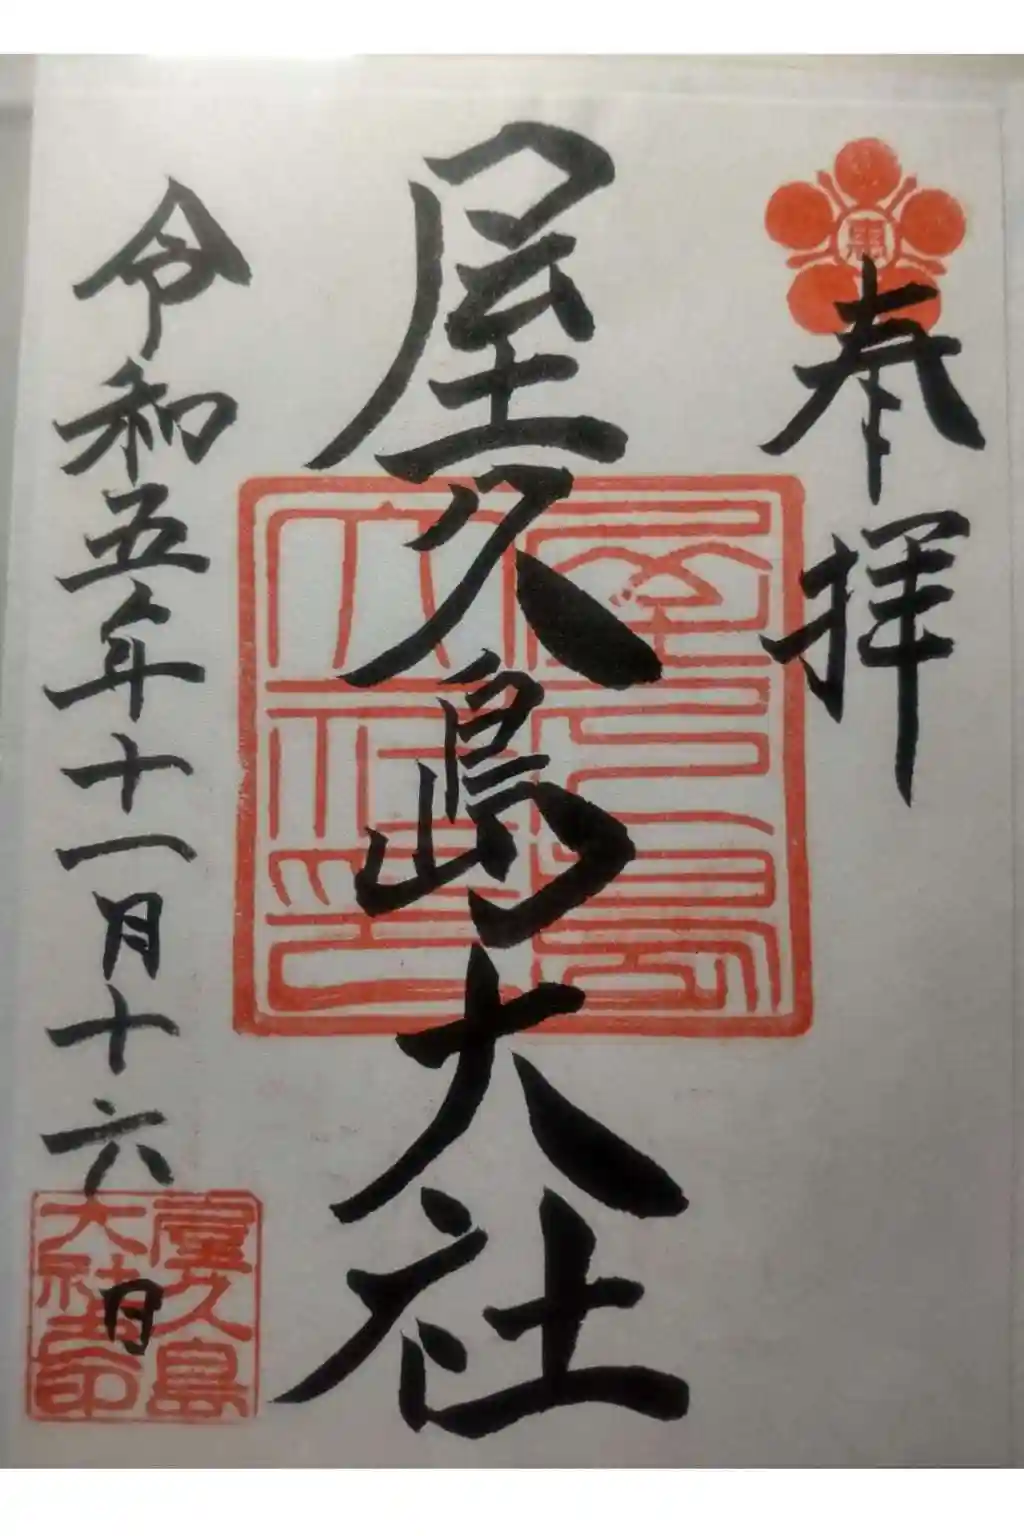 奉拝
屋久島大社
令和五年十一月十六日
屋久島
大社印
屋久島
大社之印